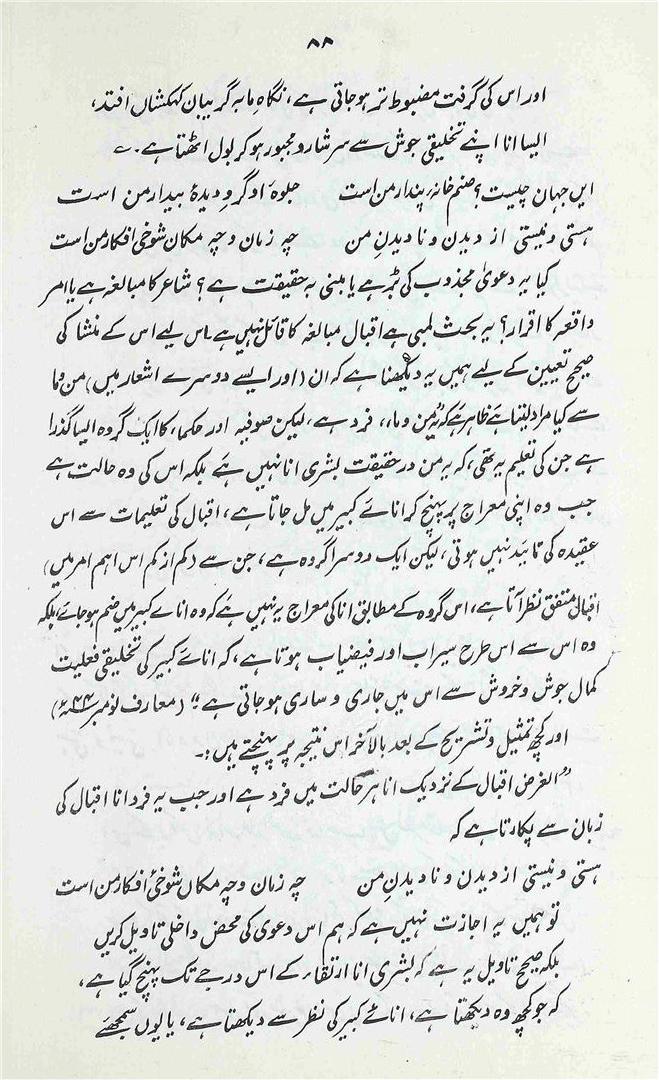 ۸۸
اور اس کی گرفت مضبوط تر ہوجاتی ہے، نگاہِ ما بہ گریبان کہکشاں افتد،
ایسا انا اپنے تخلیقی جوش سے سرشار و مجبور ہوکر بول اٹھتا ہے۔ ے
ایں جہان چیست؟ صنم خانۂ پندار من است جلوہ او گروِ دیدۂ بیدار من است
ہستی و نیستی از دیدن و نادیدنِ من چہ زمان و چہ مکان شوخی افکار من است
کیا یہ دعویٰ مجذوب کی بڑ ہے یا مبنی بہ حقیقت ہے؟ شاعر کا مبالغہ ہے یا امر
واقعہ کا اقرار؟ یہ بحث لمبی ہے اقبال مبالغہ کا قائل نہیں ہے اس لیے اس کے منشا کی
صحیح تعیین کے لیے ہمیں یہ دیکھنا ہے کہ ان (اور ایسے دوسرے اشعار میں) من و ما
سے کیا مراد لیتا ہے ظاہر ہے کہ یہ من و ما،، فرد ہے، لیکن صوفیہ اور حکما، کا ایک گروہ ایسا گذرا
ہے جن کی تعلیم یہ تھی، کہ یہ من در حقیقت بشری انا نہیں ہے بلکہ اس کی وہ حالت ہے
جب وہ اپنی معراج پر پہنچ کر انائے کبیر میں مل جاتا ہے، اقبال کی تعلیمات سے اس
عقیدہ کی تائید نہیں ہوتی، لیکن ایک دوسرا گروہ ہے، جن سے (کم از کم اس اہم امر میں)
اقبال متفق نظر آتا ہے، اس گروہ کے مطابق انا کی معراج یہ نہیں ہے کہ وہ انائے کبیر میں ضم ہو جائے، بلکہ
وہ اس سے اس طرح سیراب اور فیضیاب ہوتا ہے، کہ انائے کبیر کی تخلیقی فعلیت
کمال جوش و خروش سے اس میں جاری و ساری ہو جاتی ہے؛" (معارف نومبر ۴۴ء)
اور کچھ تمثیل و تشریح کے بعد بالآخر اس نتیجہ پر پہنچتے ہیں :۔
"الغرض اقبال کے نزدیک انا ہر حالت میں فرد ہے اور جب یہ فرد انا اقبال کی
زبان سے پکارتا ہے کہ
ہستی و نیستی از دیدن و نادیدنِ من چہ زمان و چہ مکاں شوخیٔ افکار من است
تو ہمیں یہ اجازت نہیں ہے کہ ہم اس دعویٰ کی محض داخلی تاویل کریں
بلکہ صحیح تاویل یہ ہے کہ بشری انا ارتقاء کے اس درجے تک پہنچ گیا ہے،
کہ جو کچھ وہ دیکھتا ہے، انائے کبیر کی نظر سے دیکھتا ہے، یا یوں سمجھئے